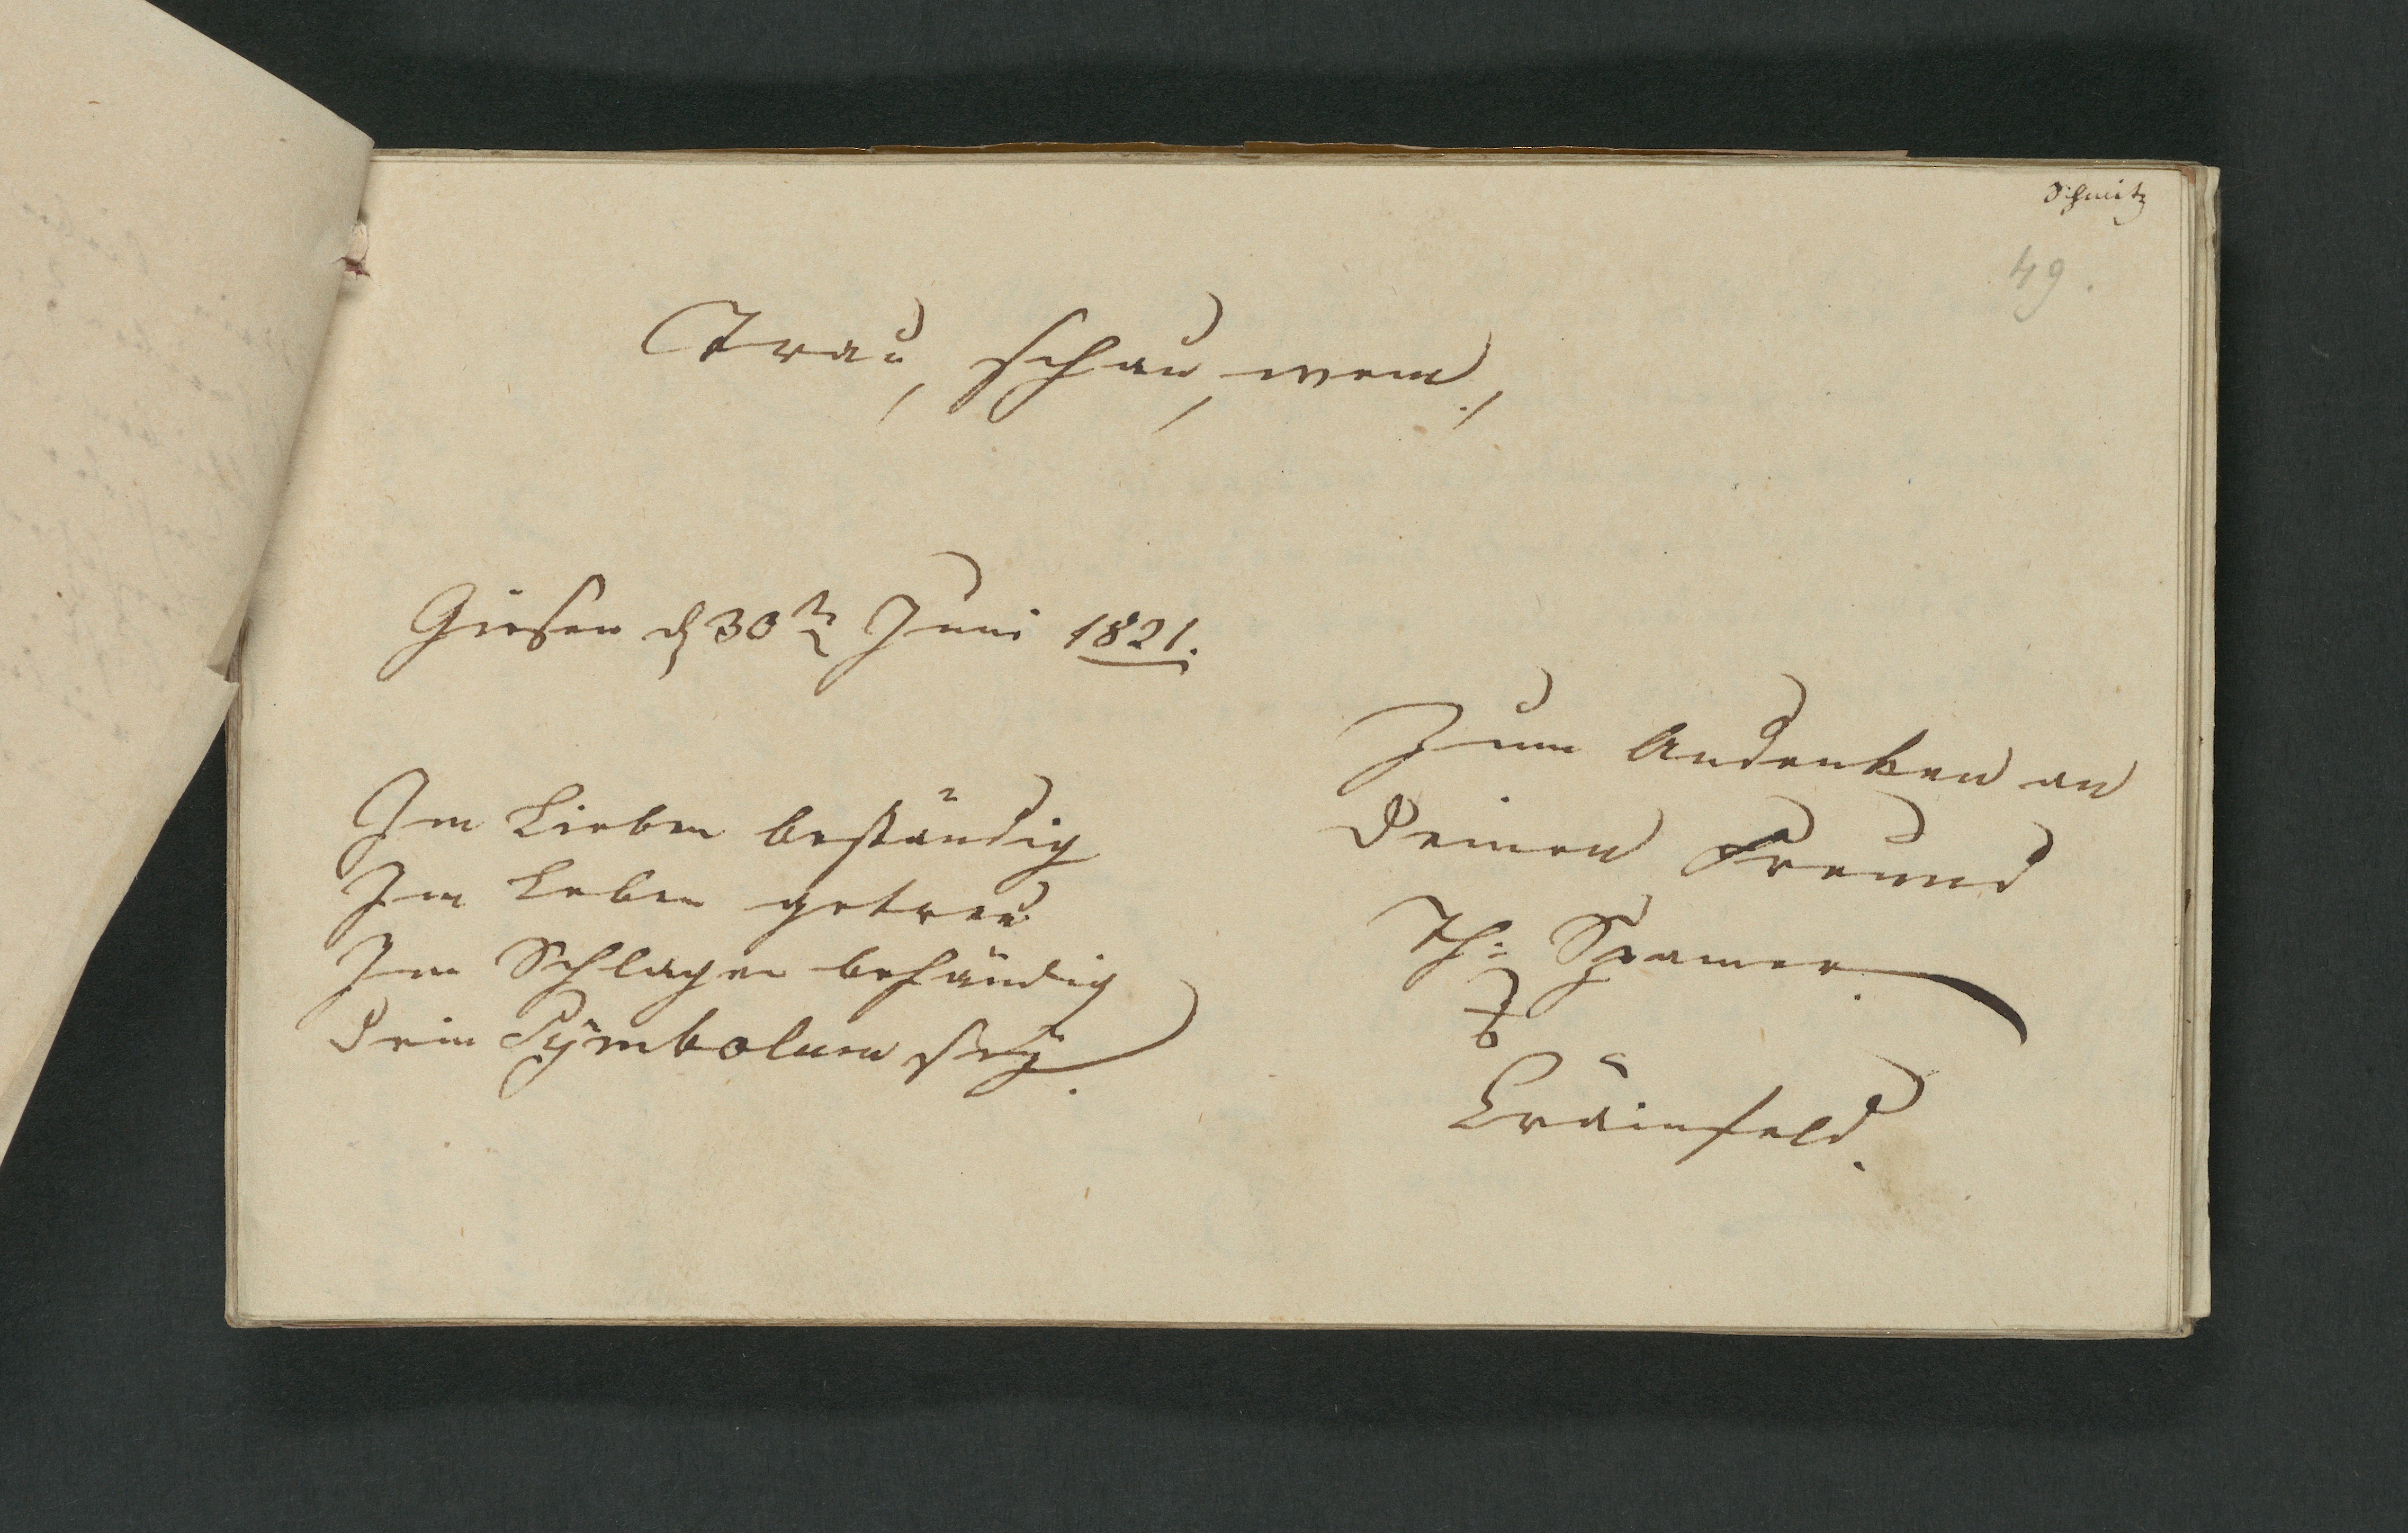 Schmitz
49.
Trau, schau, wem!
Giesen d 30ten Juni 1821.
Zum Andenken an
Deinen Freund
Th: Spamer.
Im Lieben beständig
Im Leben getreu
Im Schlagen behändig
Dein Symbolum sey.
Crainfeld.